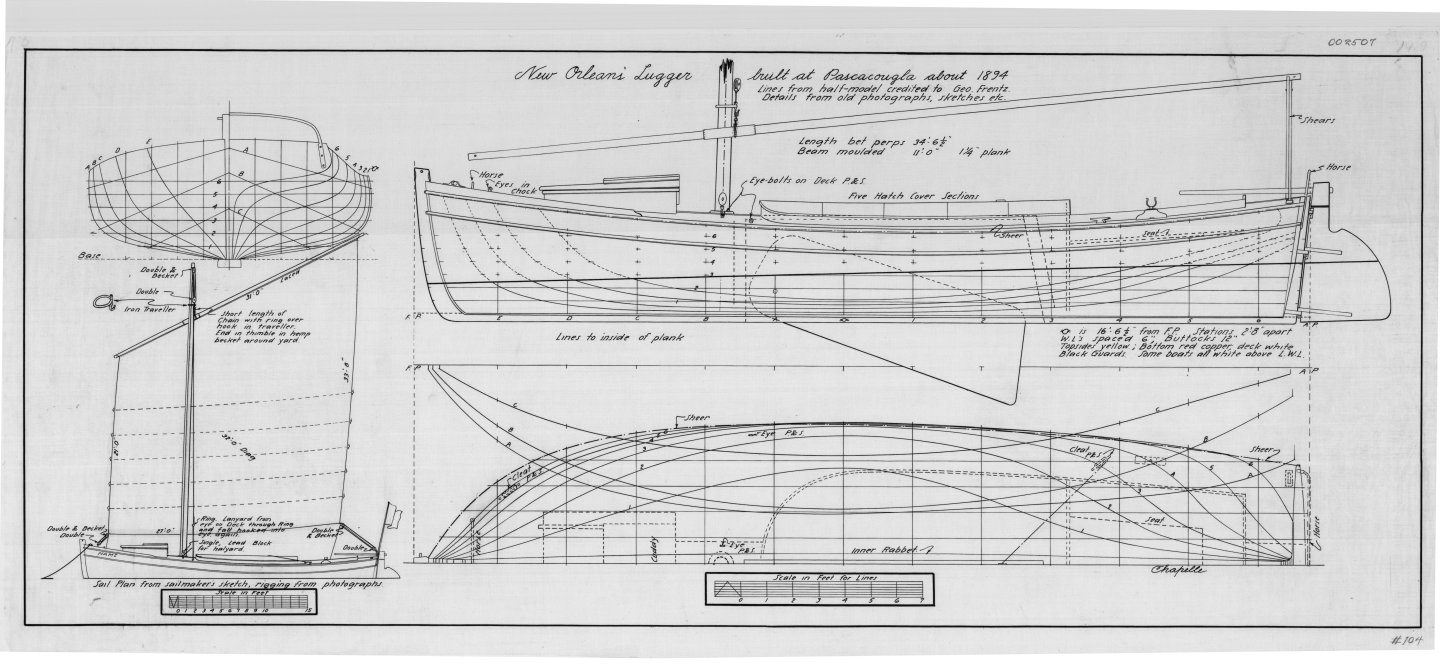 002507
New Orleans Lugger built at Pascacougla about 1894
Lines from half-model credited to Geo. Frentz.
Details from old photographs, sketches etc.
Length bet perps 34'-6½"
Beam moulded 11'-0" 1¼" plank
Shears
Horse
Horse
Eyes in
Chock
Eye-bolts on Deck P.&S.
Five Hatch Cover Sections
Sheer
Seat
6
5
4
3
2
1
F.P.
E
D
C
B
A
A.P.
Lines to inside of plank
is 16'-6½" from F.P. Stations 2'-8" apart
W.L's spaced 6", Buttocks 12"
Topsides yellow; Bottom red copper, deck white
Black Guards. Some boats all white above L.W.L.
A B C D E
A
B
C
6 5 4 3 2 1
6
5
4
3
2
Base
Double &
Becket
Double
Iron Traveller
31'-0"
Laced
Short length of
Chain with ring over
hook in traveller.
End in thimble in hemp
becket around yard
33'-8"
21'-0"
38'-0" Diag
27'-0"
Ring. Lanyard from
eye on Deck through Ring
and fall hooked into
eye again.
Single, Lead Block
for halyard.
Double & Becket
Double
Double
& Becket
Double
NAME
Sail Plan from sailmakers sketch, rigging from photographs.
Scale in Feet
0 1 2 3 4 5 6 7 8 9 10 15
F.P.
A.P.
Sheer
Eye P.&S.
Cleat
P.&S.
Cleat
P.&S.
Sheer
C
B
A
C
B
A
Horse
Cuddy
Eye
P.&S.
Inner Rabbet
Seat
Horse
Chapelle
Scale in Feet for Lines
0 1 2 3 4 5 6 7
#104